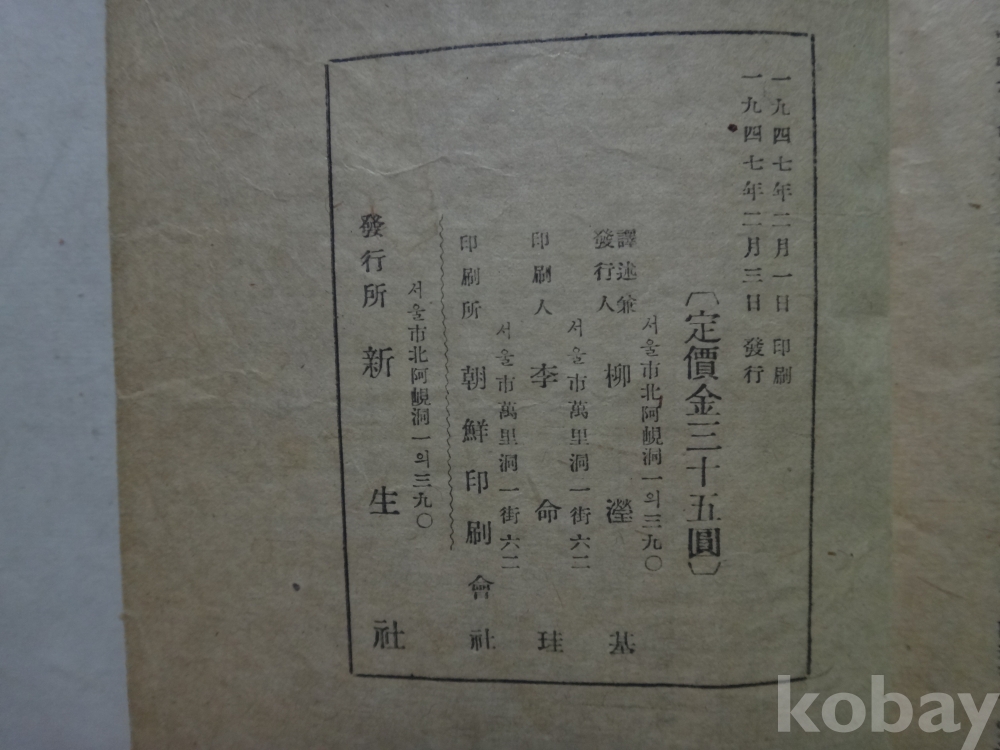 一九四七年二月一日 印刷
一九四七年二月三日 發行
〔定價金三十五圓〕
서울市北阿峴洞一의三九〇
譯述兼
發行人 柳瀅基
서울市萬里洞一街六二
印刷人 李命珪
서울市萬里洞一街六二
印刷所 朝鮮印刷會社
서울市北阿峴洞一의三九〇
發行所 新生社
kobay